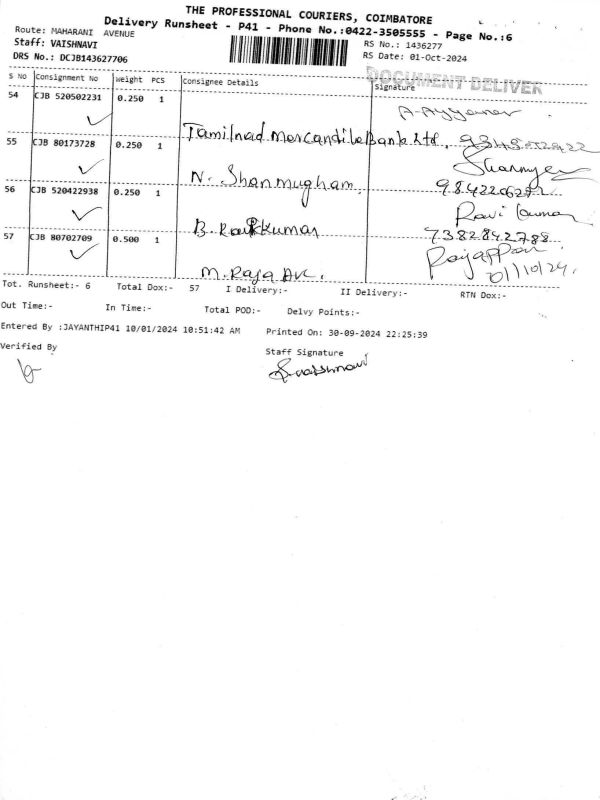 THE PROFESSIONAL COURIERS, COIMBATORE
Delivery Runsheet - P41 - Phone No.:0422-3505555 - Page No.:6
Route: MAHARANI AVENUE
Staff: VAISHNAVI
DRS No.: DCJB143627706
RS No.: 1436277
RS Date: 01-Oct-2024
DOCUMENT DELIVER
S NO Consignment No Weight PCS Consignee Details Signature
54 CJB 520502231 0.250 1
A. Ayyanar
Tamilnad Mercandile Bank Ltd,
55 CJB 80173728 0.250 1
N. Shanmugham
56 CJB 520422938 0.250 1
Ravi Kumar
B. Raj Kumar 7382842788
57 CJB 80702709 0.500 1
Rajappan
M. Raja 01/10/24.
Tot. Runsheet:- 6 Total Dox:- 57 I Delivery:- II Delivery:- RTN Dox:-
Out Time:- In Time:- Total POD:- Delvy Points:-
Entered By :JAYANTHIP41 10/01/2024 10:51:42 AM Printed On: 30-09-2024 22:25:39
Verified By Staff Signature
S. Vaishnavi